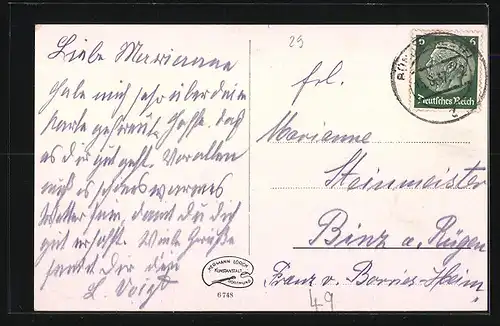 29
Liebe Marianne
Habe mich sehr über deine
Karte gefreut. Hoffe, daß
es dir gut geht. Vor allem
muß es schönes warmes
Wetter sein, damit du dich
gut erholst. Viele Grüße
sendet Dir dein
L. Voigt
Frl.
Marianne
Steinmeister
Binz a. Rügen
Franz v. Borries-Heim
49
6 6
Deutsches Reich
HERMANN LORCH
KUNSTANSTALT
DORTMUND
6748